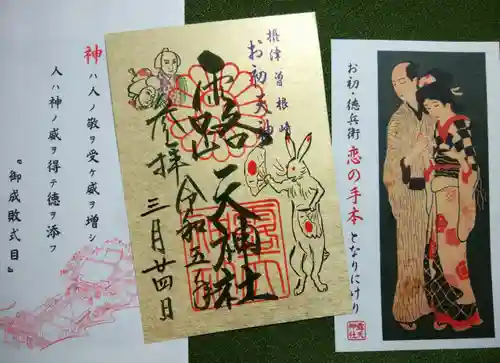 神ハ人ノ敬ヲ受ケ威ヲ増シ
人ハ神ノ威ヲ得テ徳ヲ添フ
『御成敗式目』
摂津曽根崎
お初天神
露天神社
奉拝
令和五年
三月廿四日
お初・徳兵衛
恋の手本となりにけり